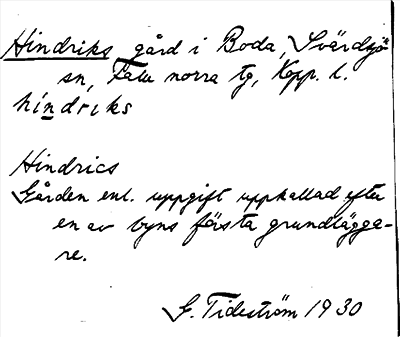 Hindriks gård i Boda, Svärdsjö
sn, Falu norra tg, Kopp. l.
hindriks
Hindrics
Gården enl. uppgift uppkallad efter
en av byns första grundlägga-
re.
G. Tideström 1930